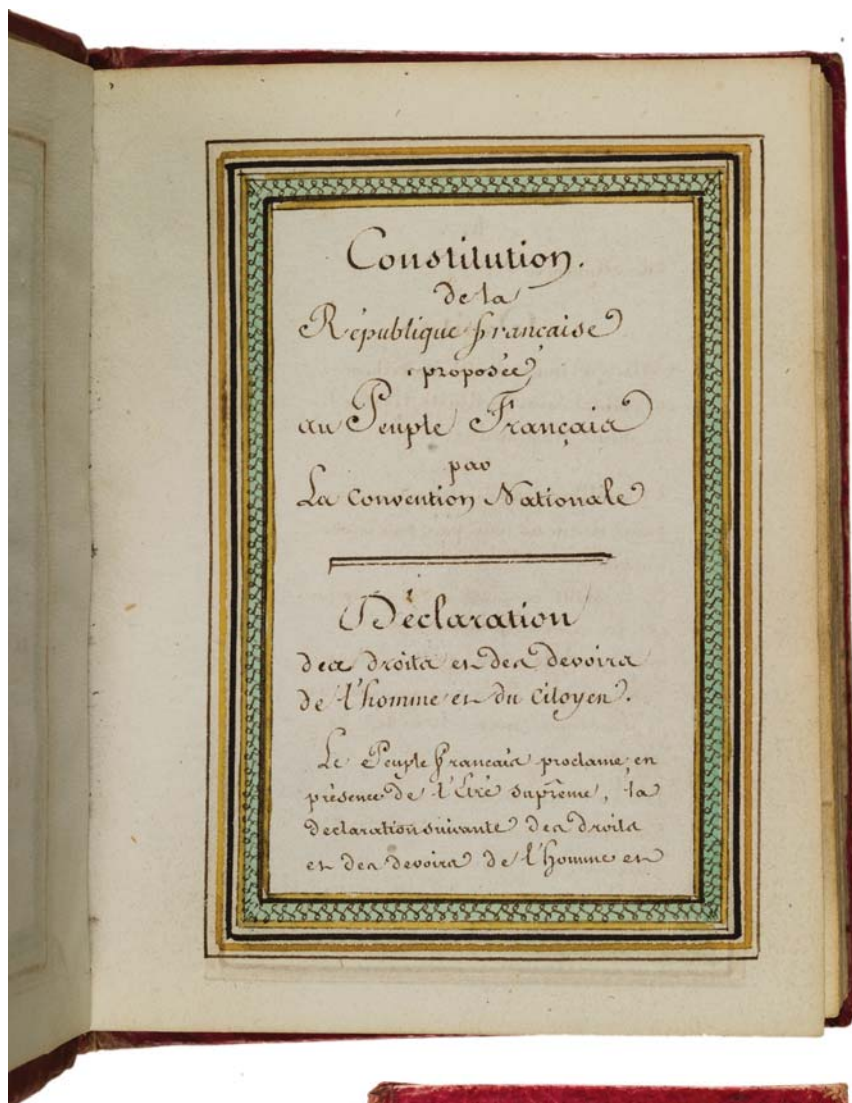 Constitution.
de la
République française
proposée
au Peuple Français
par
La Convention Nationale
Déclaration
des droits et des devoirs
de l'homme et du Citoyen.
Le Peuple français proclame en
présence de l'Etre suprême, la
declaration suivante des droits
et des devoirs de l'homme et